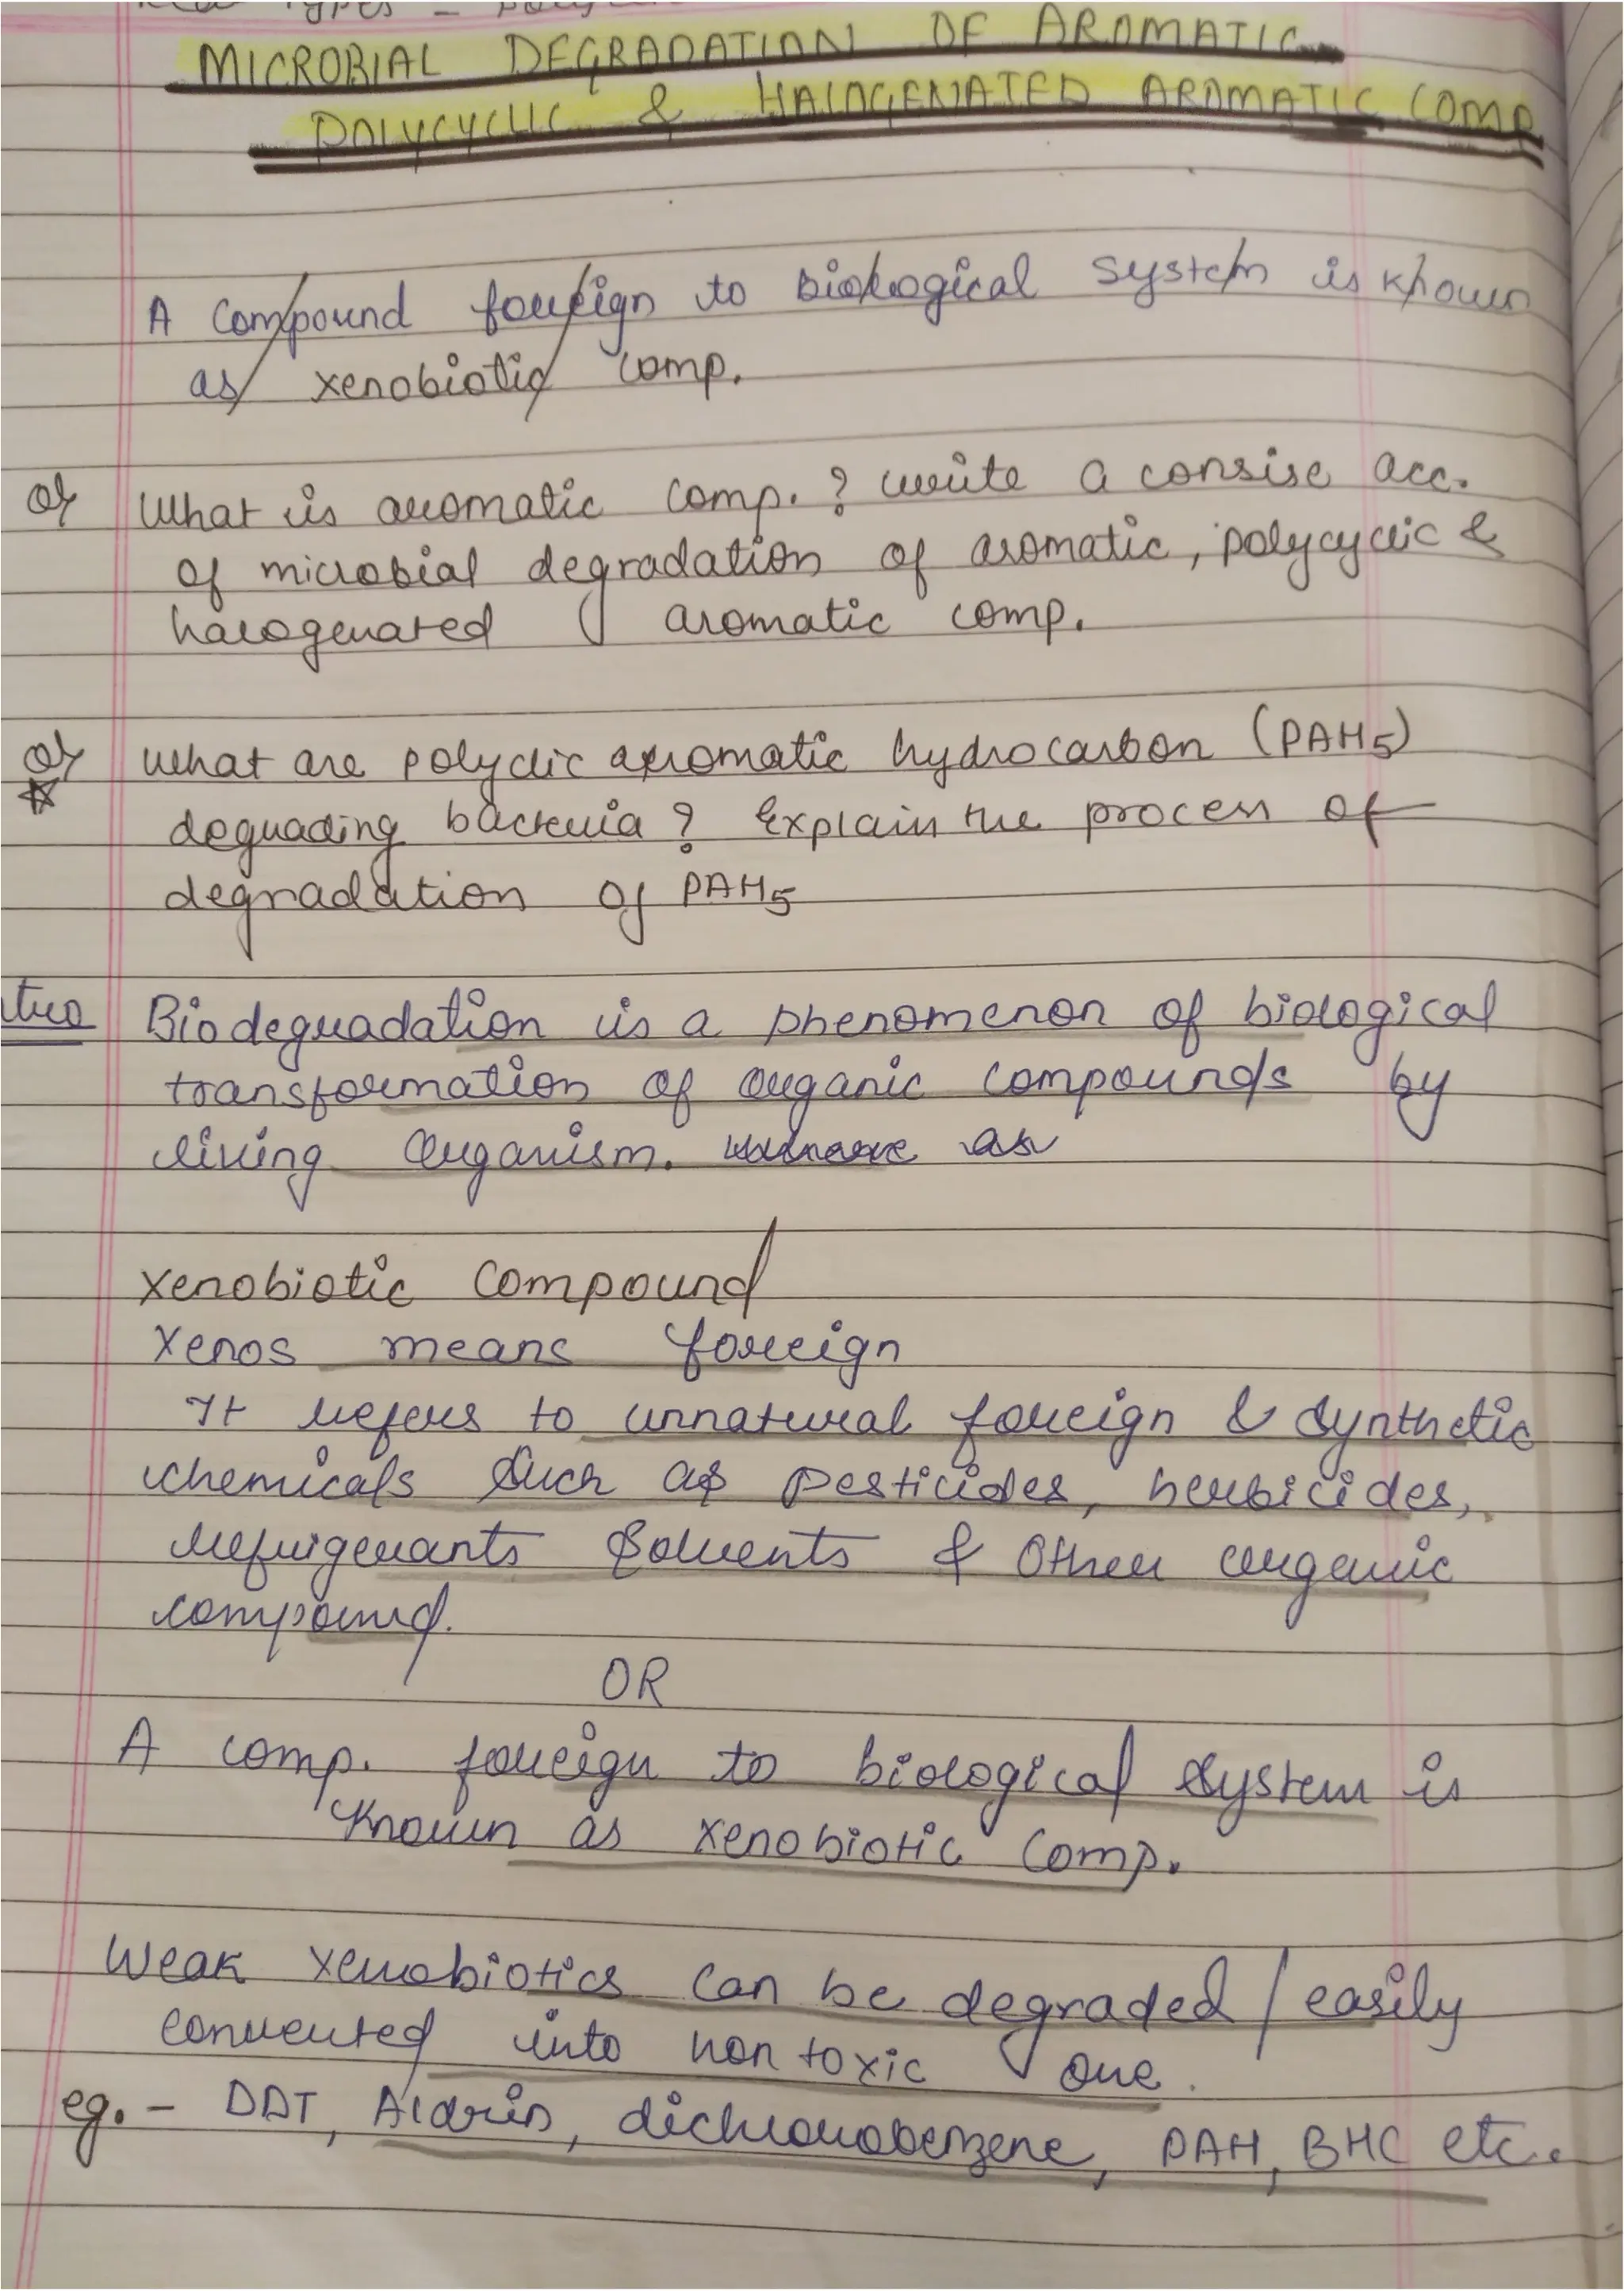 Types - poly
MICROBIAL DEGRADATION OF AROMATIC
POLYCYCLIC & HALOGENATED AROMATIC COMP
A compound foreign to biological system is known
as xenobiotic comp.
Q) What is aromatic comp. ? write a consise acc.
of microbial degradation of aromatic, polycyclic &
halogenated aromatic comp.
Q) What are polyclic aromatic hydrocarbon (PAHs)
degrading bacteria ? Explain the process of
degradation of PAHs
Biodegradation is a phenomenon of biological
transformation of organic compounds by
living organism. as
Xenobiotic Compound
Xenos means foreign
It refers to unnatural foreign & synthetic
chemicals such as pesticides, herbicides,
refrigerants solvents & other organic
compound.
OR
A comp. foreign to biological system is
known as xenobiotic comp.
Weak xenobiotics can be degraded / easily
converted into non toxic one.
eg. - DDT, Aldrin, dichlorobenzene, PAH, BHC etc.